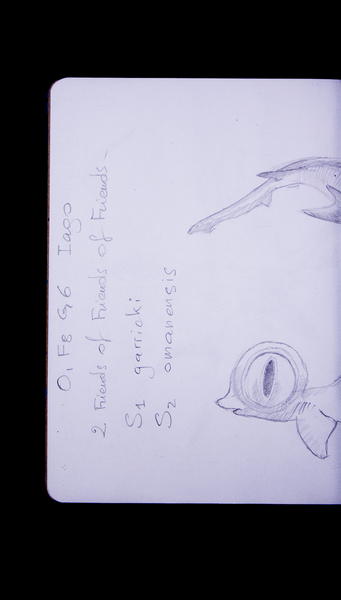 O1 F8 G6 Iago
2 Friends of Friends of Friends.
S1 garricki
S2 omanensis